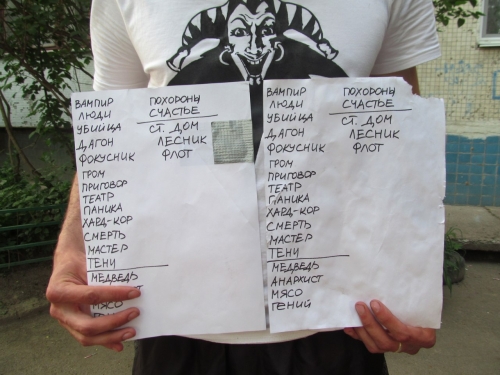 ВАМПИР
ЛЮДИ
УБИЙЦА
ДАГОН
ФОКУСНИК
ГРОМ
ПРИГОВОР
ТЕАТР
ПАНИКА
ХАРД-КОР
СМЕРТЬ
МАСТЕР
ТЕНИ
МЕДВЕДЬ
МЯСО
ПОХОРОНЫ
СЧАСТЬЕ
СТ. ДОМ
ЛЕСНИК
ФЛОТ
ВАМПИР
ЛЮДИ
УБИЙЦА
ДАГОН
ФОКУСНИК
ГРОМ
ПРИГОВОР
ТЕАТР
ПАНИКА
ХАРД-КОР
СМЕРТЬ
МАСТЕР
ТЕНИ
МЕДВЕДЬ
АНАРХИСТ
МЯСО
ГЕНИЙ
ПОХОРОНЫ
СЧАСТЬЕ
СТ. ДОМ
ЛЕСНИК
ФЛОТ